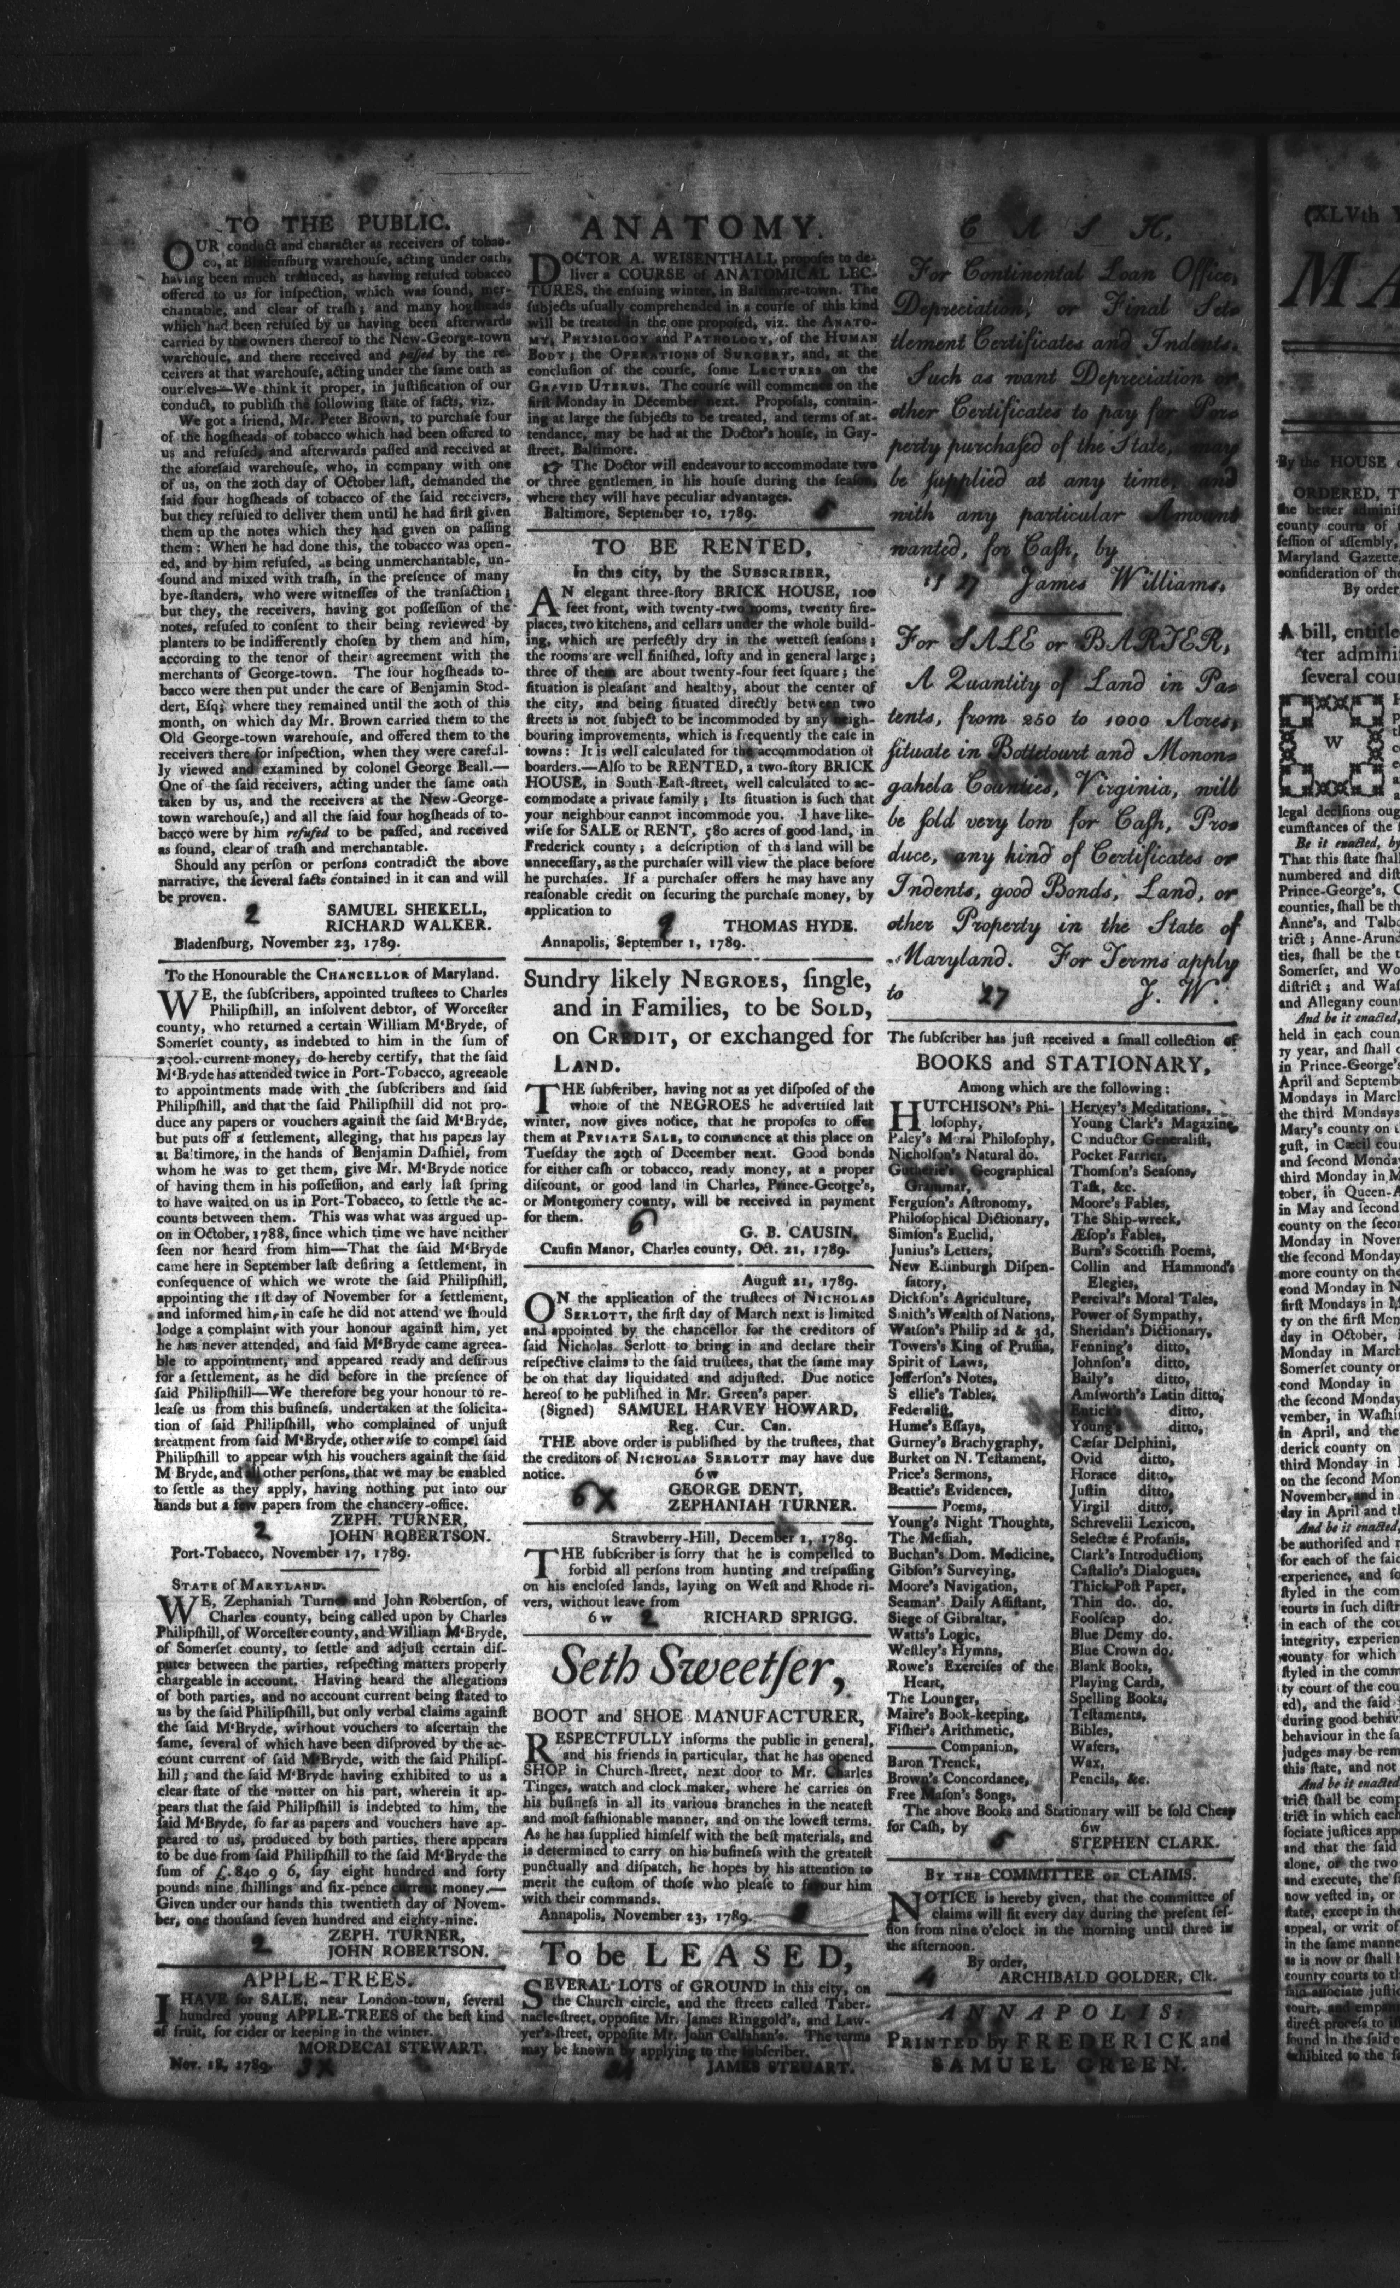 TO THE PUBLIC.
OUR conduct and character as receivers of tobac-
co, at Bladensburg warehouse, acting under oath,
having been much traduced, as having refused tobacco
offered to us for inspection, which was sound, mer-
chantable, and clear of trash; and many hogsheads
which had been refused by us having been afterwards
carried by the owners thereof to the New-George-town
warehouse, and there received and passed by the re-
ceivers at that warehouse, acting under the same oath as
ourselves—We think it proper, in justification of our
conduct, to publish the following state of facts, viz.
We got a friend, Mr. Peter Brown, to purchase four
of the hogsheads of tobacco which had been offered to
us and refused, and afterwards passed and received at
the aforesaid warehouse, who, in company with one
of us, on the 20th day of October last, demanded the
said four hogsheads of tobacco of the said receivers,
but they refused to deliver them until he had first given
them up the notes which they had given on passing
them: When he had done this, the tobacco was open-
ed, and by him refused, as being unmerchantable, un-
sound and mixed with trash, in the presence of many
bye-standers, who were witnesses of the transaction;
but they, the receivers, having got possession of the
notes, refused to consent to their being reviewed by
planters to be indifferently chosen by them and him,
according to the tenor of their agreement with the
merchants of George-town. The four hogsheads to-
bacco were then put under the care of Benjamin Stod-
dert, Esq; where they remained until the 20th of this
month, on which day Mr. Brown carried them to the
Old George-town warehouse, and offered them to the
receivers there for inspection, when they were careful-
ly viewed and examined by colonel George Beall.—
One of the said receivers, acting under the same oath
taken by us, and the receivers at the New-George-
town warehouse,) and all the said four hogsheads of to-
bacco were by him refused to be passed, and received
as sound, clear of trash and merchantable.
Should any person or persons contradict the above
narrative, the several facts contained in it can and will
be proven.
2 SAMUEL SHEKELL,
RICHARD WALKER.
Bladensburg, November 23, 1789.
To the Honourable the CHANCELLOR of Maryland.
WE, the subscribers, appointed trustees to Charles
Philipshill, an insolvent debtor, of Worcester
county, who returned a certain William M'Bryde, of
Somerset county, as indebted to him in the sum of
2500l. current money, do hereby certify, that the said
M'Bryde has attended twice in Port-Tobacco, agreeable
to appointments made with the subscribers and said
Philipshill, and that the said Philipshill did not pro-
duce any papers or vouchers against the said M'Bryde,
but puts off a settlement, alleging, that his papers lay
at Baltimore, in the hands of Benjamin Dashiel, from
whom he was to get them, give Mr. M'Bryde notice
of having them in his possession, and early last spring
to have waited on us in Port-Tobacco, to settle the ac-
counts between them. This was what was argued up-
on in October, 1788, since which time we have neither
seen nor heard from him—That the said M'Bryde
came here in September last desiring a settlement, in
consequence of which we wrote the said Philipshill,
appointing the 1st day of November for a settlement,
and informed him, in case he did not attend we should
lodge a complaint with your honour against him, yet
he has never attended, and said M'Bryde came agreea-
ble to appointment, and appeared ready and desirous
for a settlement, as he did before in the presence of
said Philipshill—We therefore beg your honour to re-
lease us from this business, undertaken at the solicita-
tion of said Philipshill, who complained of unjust
treatment from said M'Bryde, otherwise to compel said
Philipshill to appear with his vouchers against the said
M'Bryde, and all other persons, that we may be enabled
to settle as they apply, having nothing put into our
hands but a few papers from the chancery-office.
ZEPH. TURNER,
2 JOHN ROBERTSON.
Port-Tobacco, November 17, 1789.
STATE of MARYLAND.
WE, Zephaniah Turner and John Robertson, of
Charles county, being called upon by Charles
Philipshill, of Worcester county, and William M'Bryde,
of Somerset county, to settle and adjust certain dis-
putes between the parties, respecting matters properly
chargeable in account. Having heard the allegations
of both parties, and no account current being stated to
us by the said Philipshill, but only verbal claims against
the said M'Bryde, without vouchers to ascertain the
same, several of which have been disproved by the ac-
count current of said M'Bryde, with the said Philips-
hill; and the said M'Bryde having exhibited to us a
clear state of the matter on his part, wherein it ap-
pears that the said Philipshill is indebted to him, the
said M'Bryde, so far as papers and vouchers have ap-
peared to us, produced by both parties, there appears
to be due from said Philipshill to the said M'Bryde the
sum of £.840 9 6, say eight hundred and forty
pounds nine shillings and six-pence current money.—
Given under our hands this twentieth day of Novem-
ber, one thousand seven hundred and eighty-nine.
ZEPH. TURNER,
2 JOHN ROBERTSON.
APPLE-TREES.
I HAVE for SALE, near London-town, several
hundred young APPLE-TREES of the best kind
of fruit, for cider or keeping in the winter.
MORDECAI STEWART.
Nov. 18, 1789. 3X
ANATOMY.
DOCTOR A. WEISENTHALL proposes to de-
liver a COURSE of ANATOMICAL LEC-
TURES, the ensuing winter, in Baltimore-town. The
subjects usually comprehended in a course of this kind
will be treated in the one proposed, viz. the ANATO-
MY, PHYSIOLOGY and PATHOLOGY, of the HUMAN
BODY; the OPERATIONS of SURGERY, and, at the
conclusion of the course, some LECTURES on the
GRAVID UTERUS. The course will commence on the
first Monday in December next. Proposals, contain-
ing at large the subjects to be treated, and terms of at-
tendance, may be had at the Doctor's house, in Gay-
street, Baltimore.
☞ The Doctor will endeavour to accommodate two
or three gentlemen in his house during the season,
where they will have peculiar advantages.
Baltimore, September 10, 1789.
TO BE RENTED,
In this city, by the SUBSCRIBER,
AN elegant three-story BRICK HOUSE, 100
feet front, with twenty-two rooms, twenty fire-
places, two kitchens, and cellars under the whole build-
ing, which are perfectly dry in the wettest seasons;
the rooms are well finished, lofty and in general large;
three of them are about twenty-four feet square; the
situation is pleasant and healthy, about the center of
the city, and being situated directly between two
streets is not subject to be incommoded by any neigh-
bouring improvements, which is frequently the case in
towns: It is well calculated for the accommodation of
boarders.—Also to be RENTED, a two-story BRICK
HOUSE, in South-East-street, well calculated to ac-
commodate a private family; Its situation is such that
your neighbour cannot incommode you. I have like-
wise for SALE or RENT, 580 acres of good land, in
Frederick county; a description of this land will be
unnecessary, as the purchaser will view the place before
he purchases. If a purchaser offers he may have any
reasonable credit on securing the purchase money, by
application to
9 THOMAS HYDE.
Annapolis, September 1, 1789.
Sundry likely NEGROES, single,
and in Families, to be SOLD,
on CREDIT, or exchanged for
LAND.
THE subscriber, having not as yet disposed of the
whole of the NEGROES he advertised last
winter, now gives notice, that he proposes to offer
them at PRVIATE SALE, to commence at this place on
Tuesday the 29th of December next. Good bonds
for either cash or tobacco, ready money, at a proper
discount, or good land in Charles, Prince-George's,
or Montgomery county, will be received in payment
for them.
6 G. B. CAUSIN,
Causin Manor, Charles county, Oct. 21, 1789.
August 21, 1789.
ON the application of the trustees of NICHOLAS
SERLOTT, the first day of March next is limited
and appointed by the chancellor for the creditors of
said Nicholas Serlott to bring in and declare their
respective claims to the said trustees, that the same may
be on that day liquidated and adjusted. Due notice
hereof to be published in Mr. Green's paper.
(Signed) SAMUEL HARVEY HOWARD,
Reg. Cur. Can.
THE above order is published by the trustees, that
the creditors of NICHOLAS SERLOTT may have due
notice. 6 w
6X GEORGE DENT,
ZEPHANIAH TURNER.
Strawberry-Hill, December 1, 1789.
THE subscriber is sorry that he is compelled to
forbid all persons from hunting and trespassing
on his enclosed lands, laying on West and Rhode ri-
vers, without leave from
6 w 2 RICHARD SPRIGG.
Seth Sweetser,
BOOT and SHOE MANUFACTURER,
RESPECTFULLY informs the public in general,
and his friends in particular, that he has opened
SHOP in Church-street, next door to Mr. Charles
Tinges, watch and clock maker, where he carries on
his business in all its various branches in the neatest
and most fashionable manner, and on the lowest terms.
As he has supplied himself with the best materials, and
is determined to carry on his business with the greatest
punctually and dispatch, he hopes by his attention to
merit the custom of those who please to favour him
with their commands.
Annapolis, November 23, 1789.
To be LEASED,
SEVERAL LOTS of GROUND in this city, on
the Church circle, and the streets called Taber-
nacle-street, opposite Mr. James Ringgold's, and Law-
yer's-street, opposite Mr. John Callahan's. The terms
may be known by applying to the subscriber.
JAMES STEUART.
CASH.
For Continental Loan Office,
Depreciation, or Final Set-
tlement Certificates and Indents.
Such as want Depreciation or
other Certificates to pay for Pro-
perty purchased of the State, may
be supplied at any time, and
with any particular Amount
wanted, for Cash, by
27 James Williams.
For SALE or BARTER,
A Quantity of Land in Pa-
tents, from 250 to 1000 Acres,
situate in Bottetourt and Monon-
gahela Counties, Virginia, will
be sold very low for Cash, Pro-
duce, any kind of Certificates or
Indents, good Bonds, Land, or
other Property in the State of
Maryland. For Terms apply
to 27 J. W.
The subscriber has just received a small collection of
BOOKS and STATIONARY,
Among which are the following:
HUTCHISON's Phi-
losophy,
Paley's Moral Philosophy,
Nicholson's Natural do.
Gutherie's Geographical
Grammar,
Ferguson's Astronomy,
Philosophical Dictionary,
Simson's Euclid,
Junius's Letters,
New Edinburgh Dispen-
satory,
Dickson's Agriculture,
Smith's Wealth of Nations,
Watson's Philip 2d & 3d,
Towers's King of Prussia,
Spirit of Laws,
Jefferson's Notes,
S ellie's Tables,
Federalist,
Hume's Essays,
Gurney's Brachygraphy,
Burket on N. Testament,
Price's Sermons,
Beattie's Evidences,
—— Poems,
Young's Night Thoughts,
The Messiah,
Buchan's Dom. Medicine,
Gibson's Surveying,
Moore's Navigation,
Seaman' Daily Assistant,
Siege of Gibraltar,
Watts's Logic,
Westley's Hymns,
Rowe's Exercises of the
Heart,
The Lounger,
Maire's Book-keeping,
Fisher's Arithmetic,
—— Companion,
Baron Trenck,
Brown's Concordance,
Free Mason's Songs,
Hervey's Meditations,
Young Clark's Magazine,
Conductor Generalist,
Pocket Farrier,
Thomson's Seasons,
Task, &c.
Moore's Fables,
The Ship-wreck,
Æsop's Fables,
Burn's Scottish Poems,
Collin and Hammond's
Elegies,
Percival's Moral Tales,
Power of Sympathy,
Sheridan's Dictionary,
Fenning's ditto,
Johnson's ditto,
Baily's ditto,
Amsworth's Latin ditto,
Entick's ditto,
Young's ditto,
Cæsar Delphini,
Ovid ditto,
Horace ditto,
Justin ditto,
Virgil ditto,
Schrevelii Lexicon,
Selectæ é Profanis,
Clark's Introduction,
Castalio's Dialogues,
Thick Post Paper,
Thin do. do.
Foolscap do.
Blue Demy do.
Blue Crown do.
Blank Books,
Playing Cards,
Spelling Books,
Testaments,
Bibles,
Wafers,
Wax,
Pencils, &c.
The above Books and Stationary will be sold Cheap
for Cash, by 6w
5 STEPHEN CLARK.
BY THE COMMITTEE OF CLAIMS.
NOTICE is hereby given, that the committee of
claims will sit every day during the present ses-
sion from nine o'clock in the morning until three in
the afternoon.
By order,
4 ARCHIBALD GOLDER, Clk.
ANNAPOLIS:
PRINTED by FREDERICK and
SAMUEL GREEN.
(XLVth
MA
By the HOUSE
ORDERED, T
the better adminis
county courts of
session of assembly,
Maryland Gazette,
consideration of the
By order
A bill, entitle
ter adminis
several cour
W
legal decisions oug
cumstances of the
Be it enacted, by
That this state shall
numbered and dist
Prince-George's, C
counties, shall be th
Anne's, and Talbo
trict; Anne-Arund
ties, shall be the t
Somerset, and Wo
district; and Was
and Allegany coun
And be it enacted,
held in each coun
ry year, and shall c
in Prince-George's
April and Septemb
Mondays in March
the third Mondays
Mary's county on t
gust, in Cæcil coun
and second Monda
third Monday in M
tober, in Queen-A
in May and second
county on the seco
Monday in Novem
the second Monday
more county on the
cond Monday in N
first Mondays in M
ty on the first Mon
day in October,
Monday in March
Somerset county on
cond Monday in
the second Monday
vember, in Washi
in April, and the
derick county on
third Monday in
on the second Mon
November, and in
day in April and t
And be it enacted,
be authorised and r
for each of the said
experience, and so
styled in the com
courts in such distr
in each of the cou
integrity, experien
county for which
styled in the comm
ty court of the cou
ed), and the said
during good behav
behaviour in the sa
judges may be rem
this state, and not
And be it enacted
trict shall be comp
trict in which each
sociate justices app
and that the said
alone, or the two
and execute, the s
now vested in, or
state, except in the
appeal, or writ of
in the same manne
as is now or shall
county courts to th
said associate justic
court, and empan
direct process to
found in the said c
exhibited to the